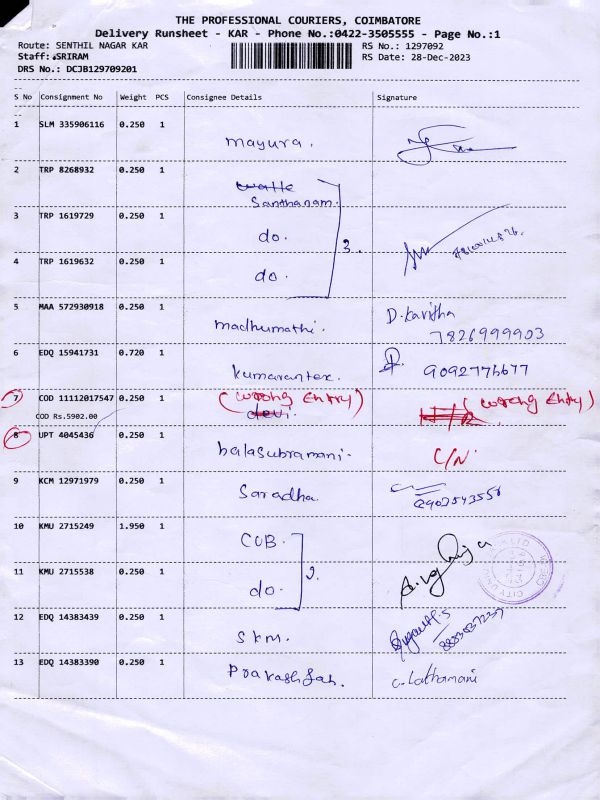 THE PROFESSIONAL COURIERS, COIMBATORE
Delivery Runsheet - KAR - Phone No.:0422-3505555 - Page No.:1
Route: SENTHIL NAGAR KAR RS No.: 1297092
Staff: SRIRAM RS Date: 28-Dec-2023
DRS No.: DCJB129709201
S No Consignment No Weight PCS Consignee Details Signature
1 SLM 335906116 0.250 1 mayura.
2 TRP 8268932 0.250 1 Santhanam.
3 TRP 1619729 0.250 1 do. 3.
4 TRP 1619632 0.250 1 do.
5 MAA 572930918 0.250 1 madhumathi. D. Kavitha
7826999903
6 EDQ 15941731 0.720 1 kumarantex. 9092775677
7 COD 11112017547 0.250 1 (wrong Entry) devi. (wrong Entry)
COD Rs.5902.00
8 UPT 4045436 0.250 1 balasubramani. C/N
9 KCM 12971979 0.250 1 Saradha.
10 KMU 2715249 1.950 1 CUB.
11 KMU 2715538 0.250 1 do. 2.
12 EDQ 14383439 0.250 1 SKM.
13 EDQ 14383390 0.250 1 Prakash C. Lathamani